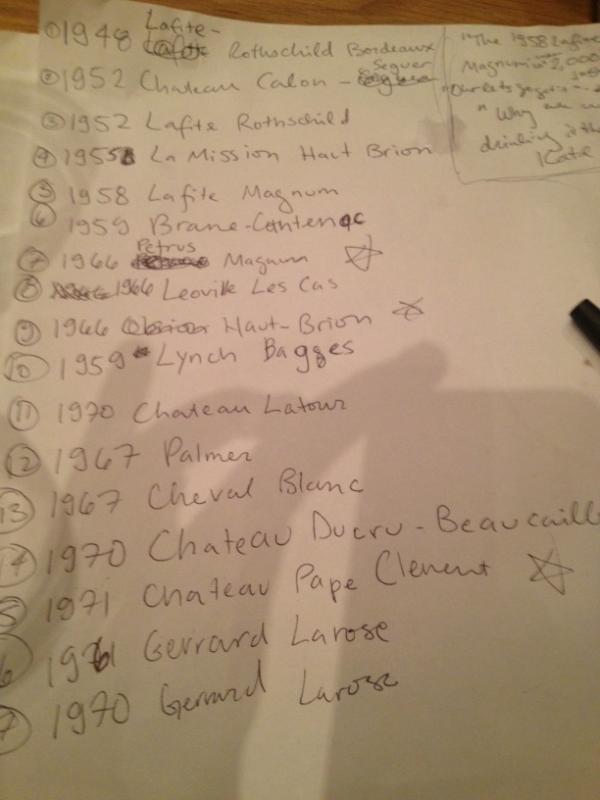 ① 1948 Lafite- Rothschild Bordeaux
② 1952 Chateau Calon - Seguer
③ 1952 Lafite Rothschild
④ 1955 La Mission Haut Brion
⑤ 1958 Lafite Magnum
⑥ 1959 Brane-Cantenac
⑦ 1966 Petrus Magnum
⑧ 1966 Leoville Les Cas
⑨ 1966 Haut-Brion
⑩ 1959 Lynch Bagges
⑪ 1970 Chateau Latour
⑫ 1967 Palmer
⑬ 1967 Cheval Blanc
⑭ 1970 Chateau Ducru-Beaucaill
5 1971 Chateau Pape Clement
6 1961 Gerrard Larose
7 1970 Gerrard Larose
"The 1958 Lafite
Magnum is 2,000
"Why are we
drinking it